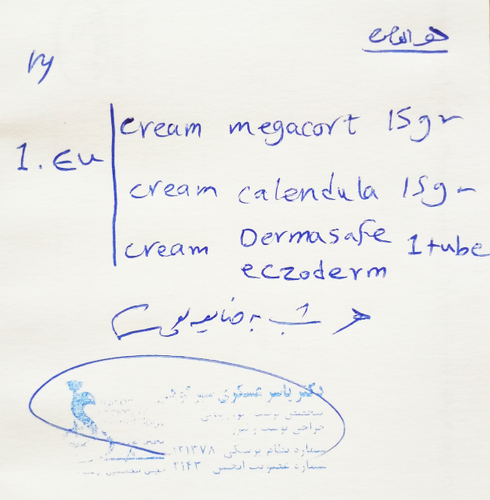 هوالشافی
Ry
1. Eu
cream megacort 15gr
cream calendula 15gr
cream Dermasafe 1 tube
eczoderm
هر شب به ضایعه
دکتر یاسر عسکری
متخصص پوست
جراحی پوست و مو
شماره نظام پزشکی ۱۲۱۳۷۸
شماره عضویت انجمن ۲۱۴۳